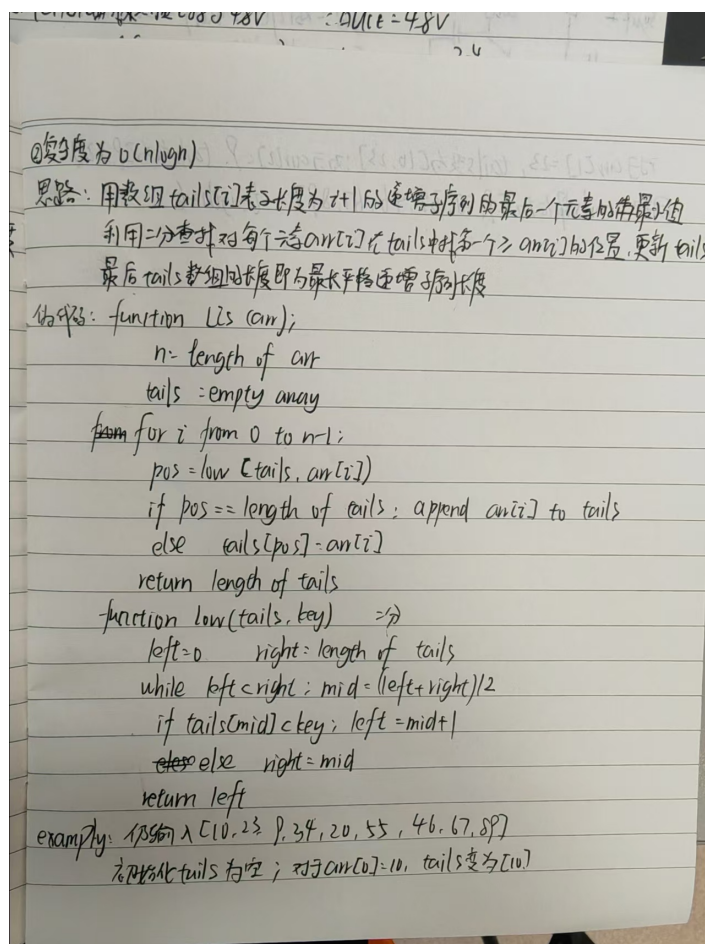 ∴ΔUCE=4.8V
②复杂度为O(nlogn)
思路：用数组tails[i]表示长度为i+1的递增子序列的最后一个元素的最小值
利用二分查找对每个元素arr[i]在tails中找第一个≥arr[i]的位置,更新tails
最后tails数组的长度即为最长平稳递增子序列长度
伪代码：function Lis (arr);
n= length of arr
tails =empty array
for i from 0 to n-1;
pos=low [tails, arr[i])
if pos== length of tails; append arr[i] to tails
else tails[pos]=arr[i]
return length of tails
function low(tails, key) 二分
left=0 right= length of tails
while left<right; mid=(left+right)/2
if tails[mid]<key; left=mid+1
else right=mid
return left
examply: 仍输入[10,23,9,34,20,55,46,67,89]
初始化tails为空；对于arr[0]=10, tails变为[10]